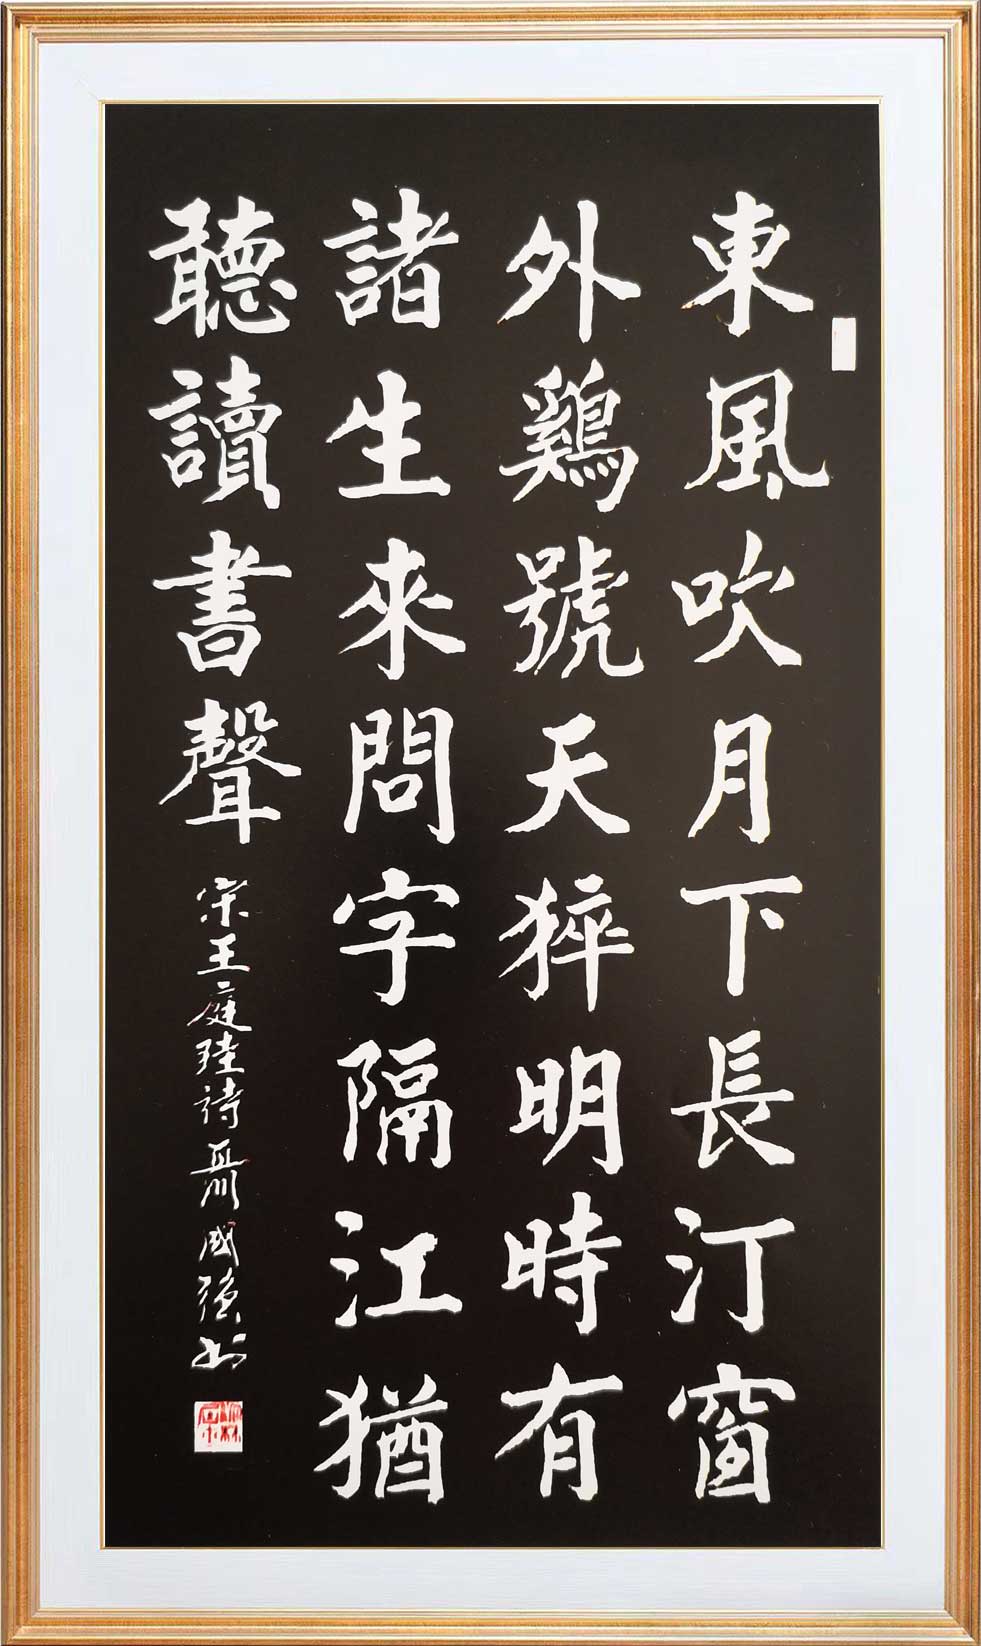 東風吹月下長汀窗
外鷄號天猝明時有
諸生來問字隔江猶
聽讀書聲
宋王庭珪詩聶川成强书